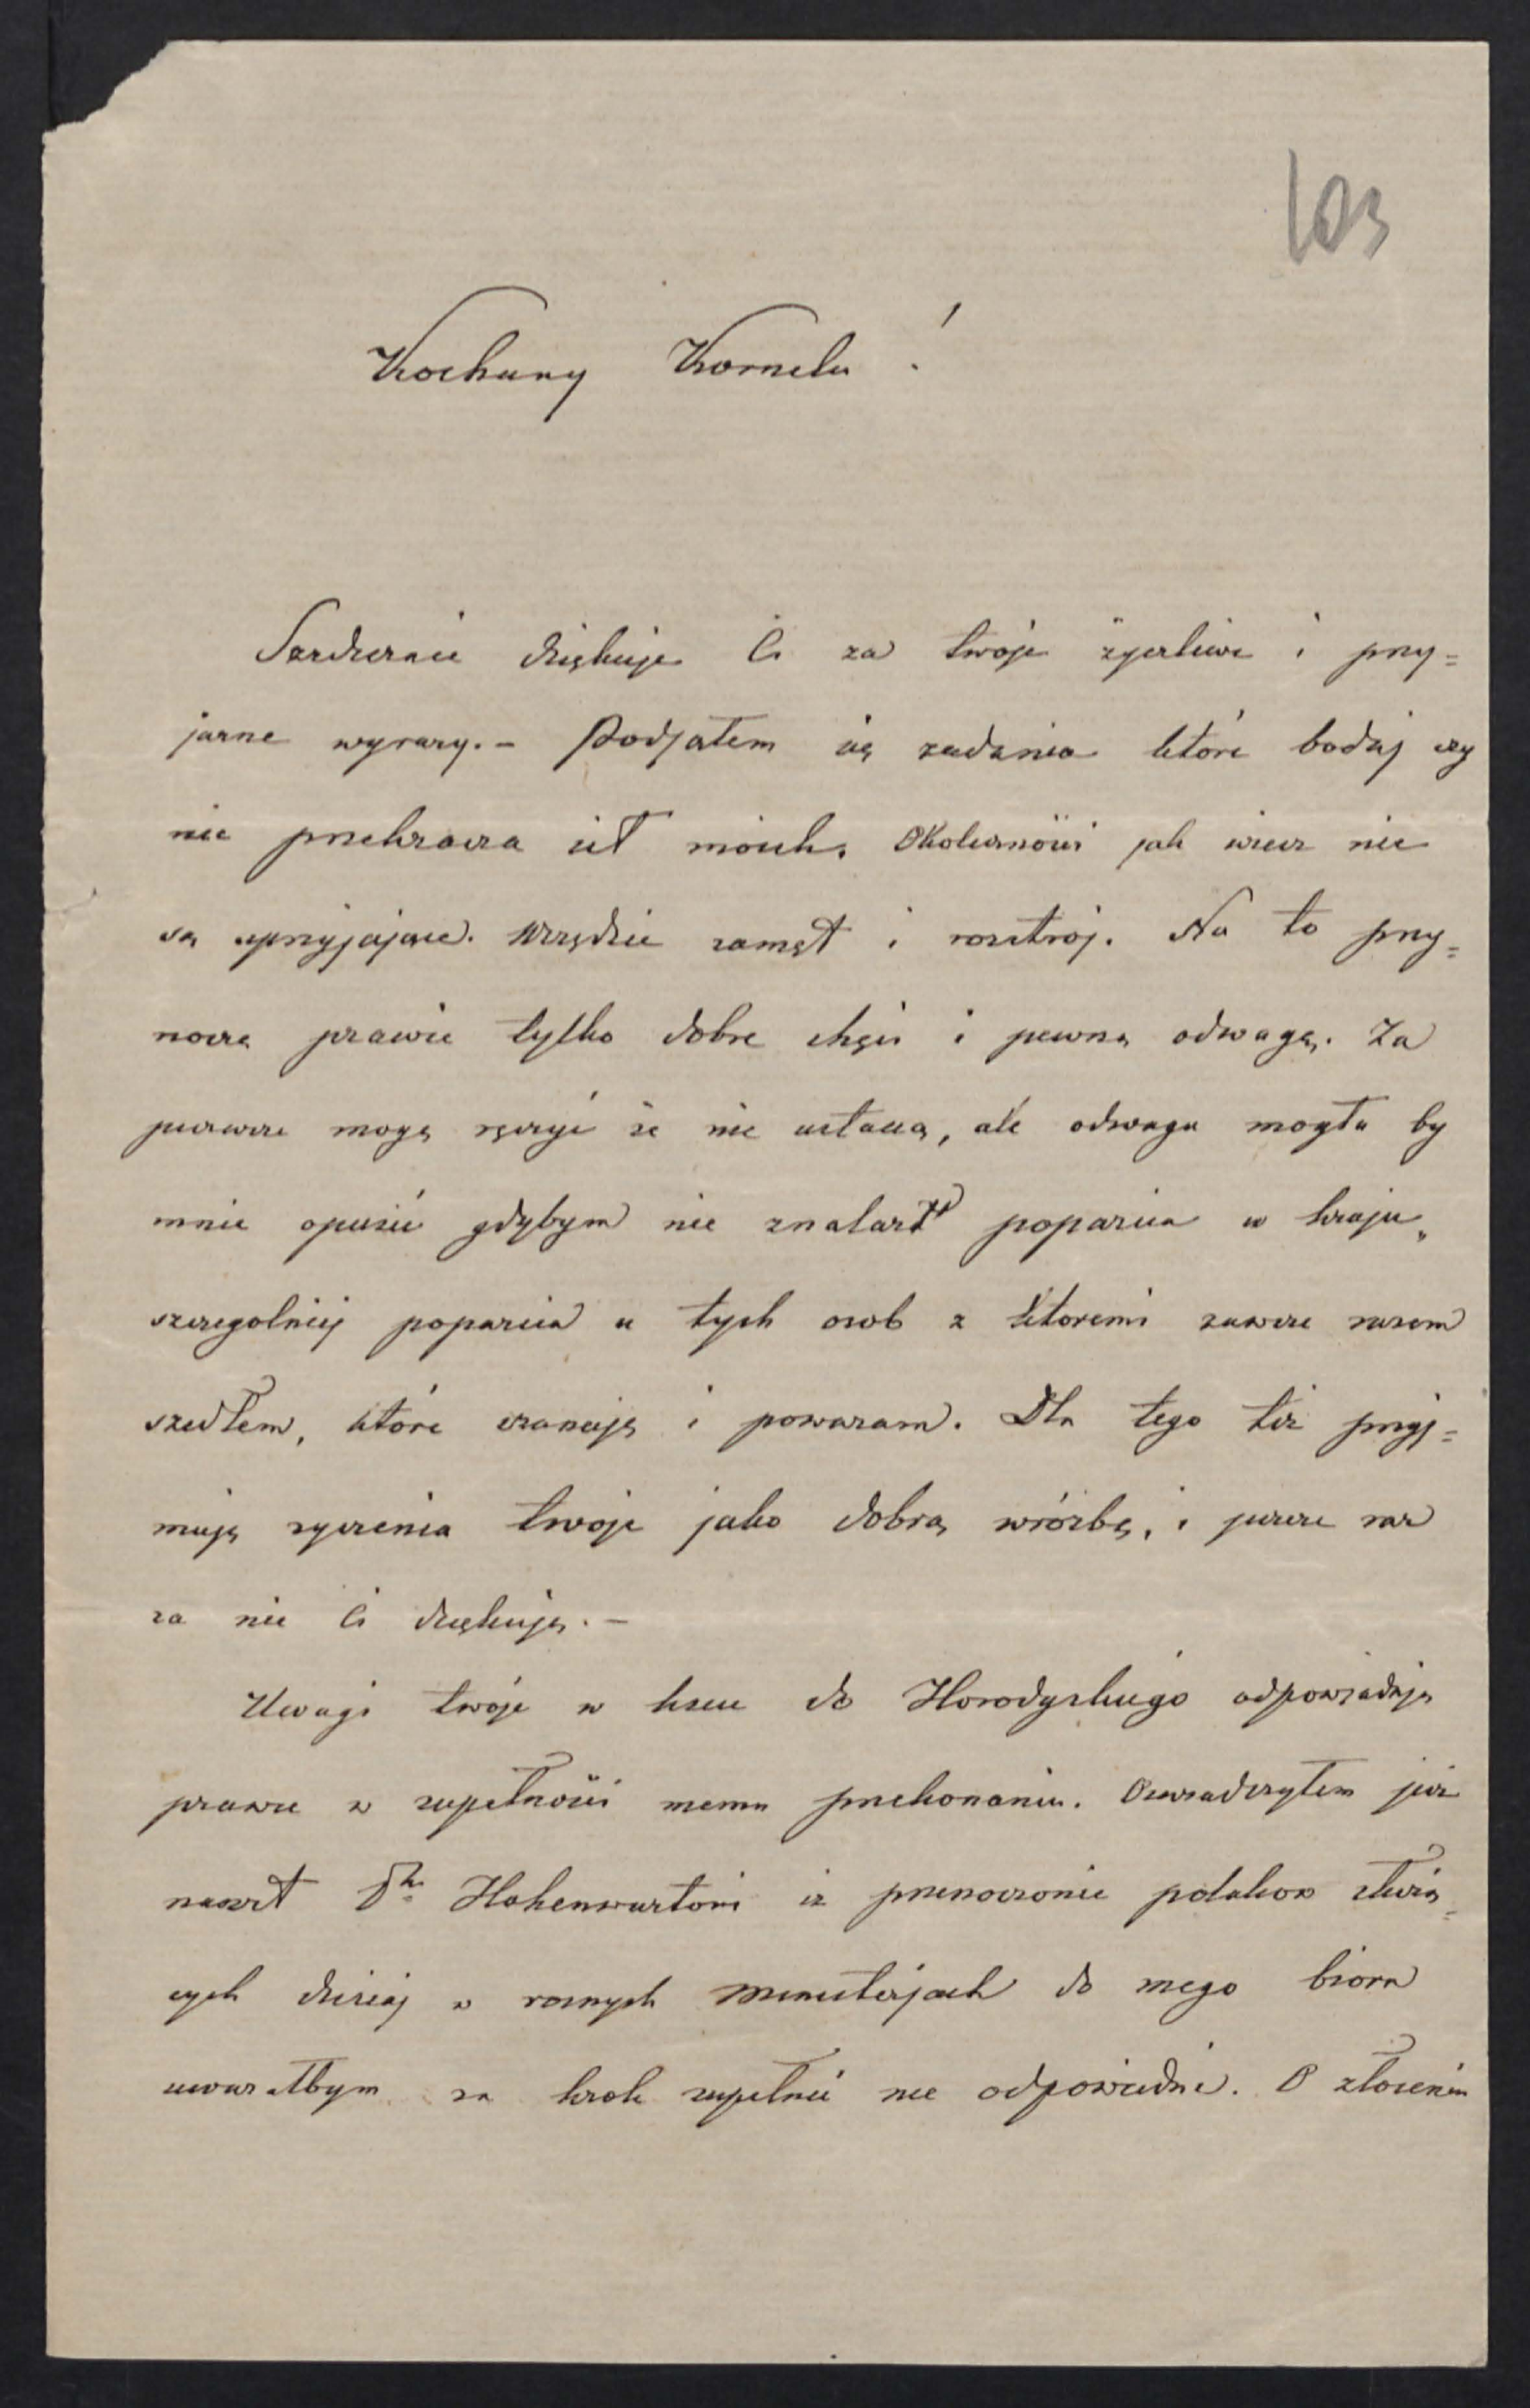 103
Kochany Kornelu!
Serdecznie dziękuje Ci za twoje życzliwe i przy=
jazne wyrazy.- Podjąłem się zadania które bodaj czy
nie przekracza sił moich. Okoliczności jak wiesz nie
są sprzyjające. Wszędzie zamęt i rozstrój. Na to przy=
noszę prawie tylko dobre chęci i pewną odwagę. Za
pierwsze mogę ręczyć że nie ustaną, ale odwaga mogła by
mnie opuścić gdybym nie znalazł poparcia w kraju,
szczególniej poparcia u tych osob z ktoremi zawsze razem
szedłem, które szanuję i poważam. Dla tego też przyj=
muję życzenia twoje jako dobrą wróżbę, i jeszcze raz
za nie Ci dziękuję.-
Uwagi twoje w liscie do Horodyskiego odpowiadają
prawie w zupełności memu przekonaniu. Oswiadczyłem już
nawet Hr. Hohenwartowi iż przenoszenie polakow służą=
cych dzisiaj w roznych Ministerjach do mego biora
uważałbym za krok zupełnie nie odpowiedni. O złożeniu